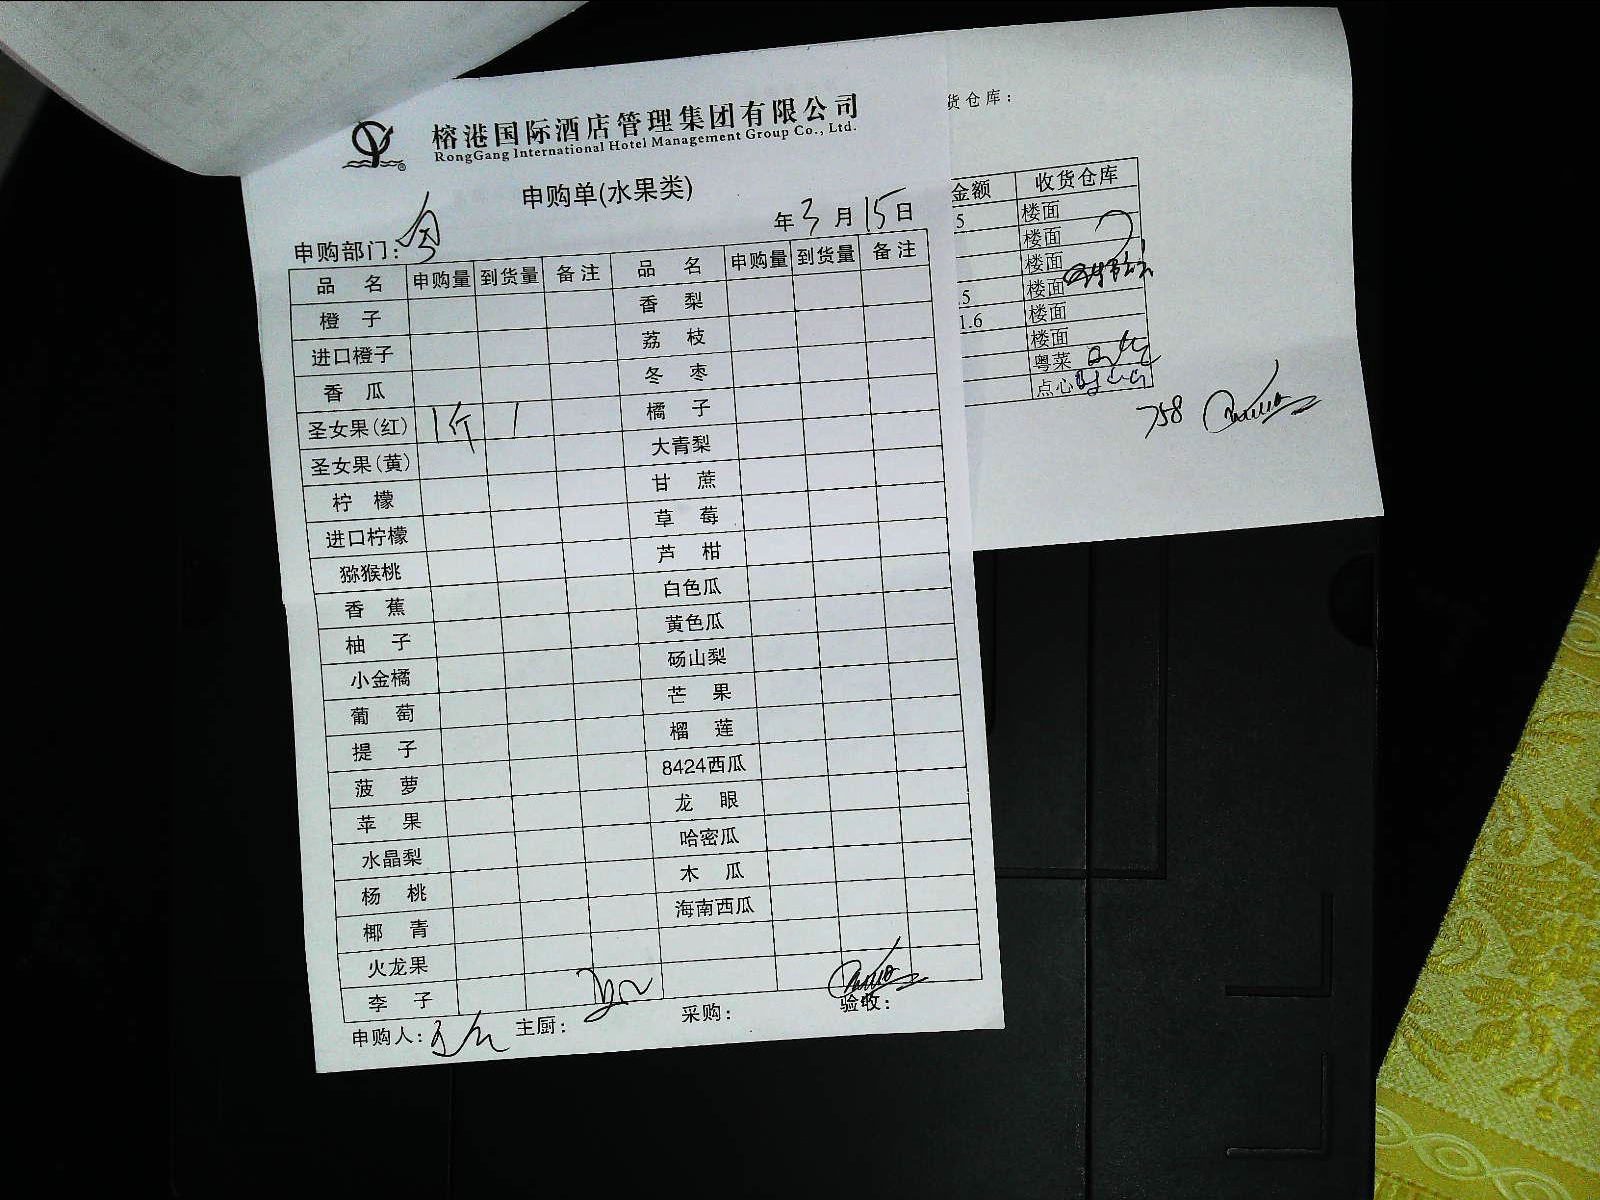 榕港国际酒店管理集团有限公司
RongGang International Hotel Management Group Co., Ltd.
申购单(水果类)
申购部门: 年3月15日
品名 申购量 到货量 备注 品名 申购量 到货量 备注
橙子 香梨
进口橙子 荔枝
香瓜 冬枣
圣女果(红) 1斤 1 橘子
圣女果(黄) 大青梨
柠檬 甘蔗
进口柠檬 草莓
猕猴桃 芦柑
香蕉 白色瓜
柚子 黄色瓜
小金橘 砀山梨
葡萄 芒果
提子 榴莲
菠萝 8424西瓜
苹果 龙眼
水晶梨 哈密瓜
杨桃 木瓜
椰青 海南西瓜
火龙果
李子
申购人: 主厨: 采购: 验收:
货仓库:
金额 收货仓库
5 楼面
楼面
楼面
.5 楼面
1.6 楼面
楼面
粤菜
点心
758